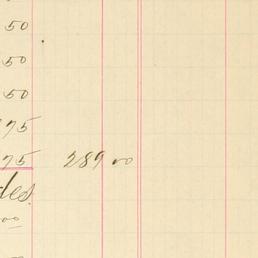 50
50
50
75
75 289 00
des
00